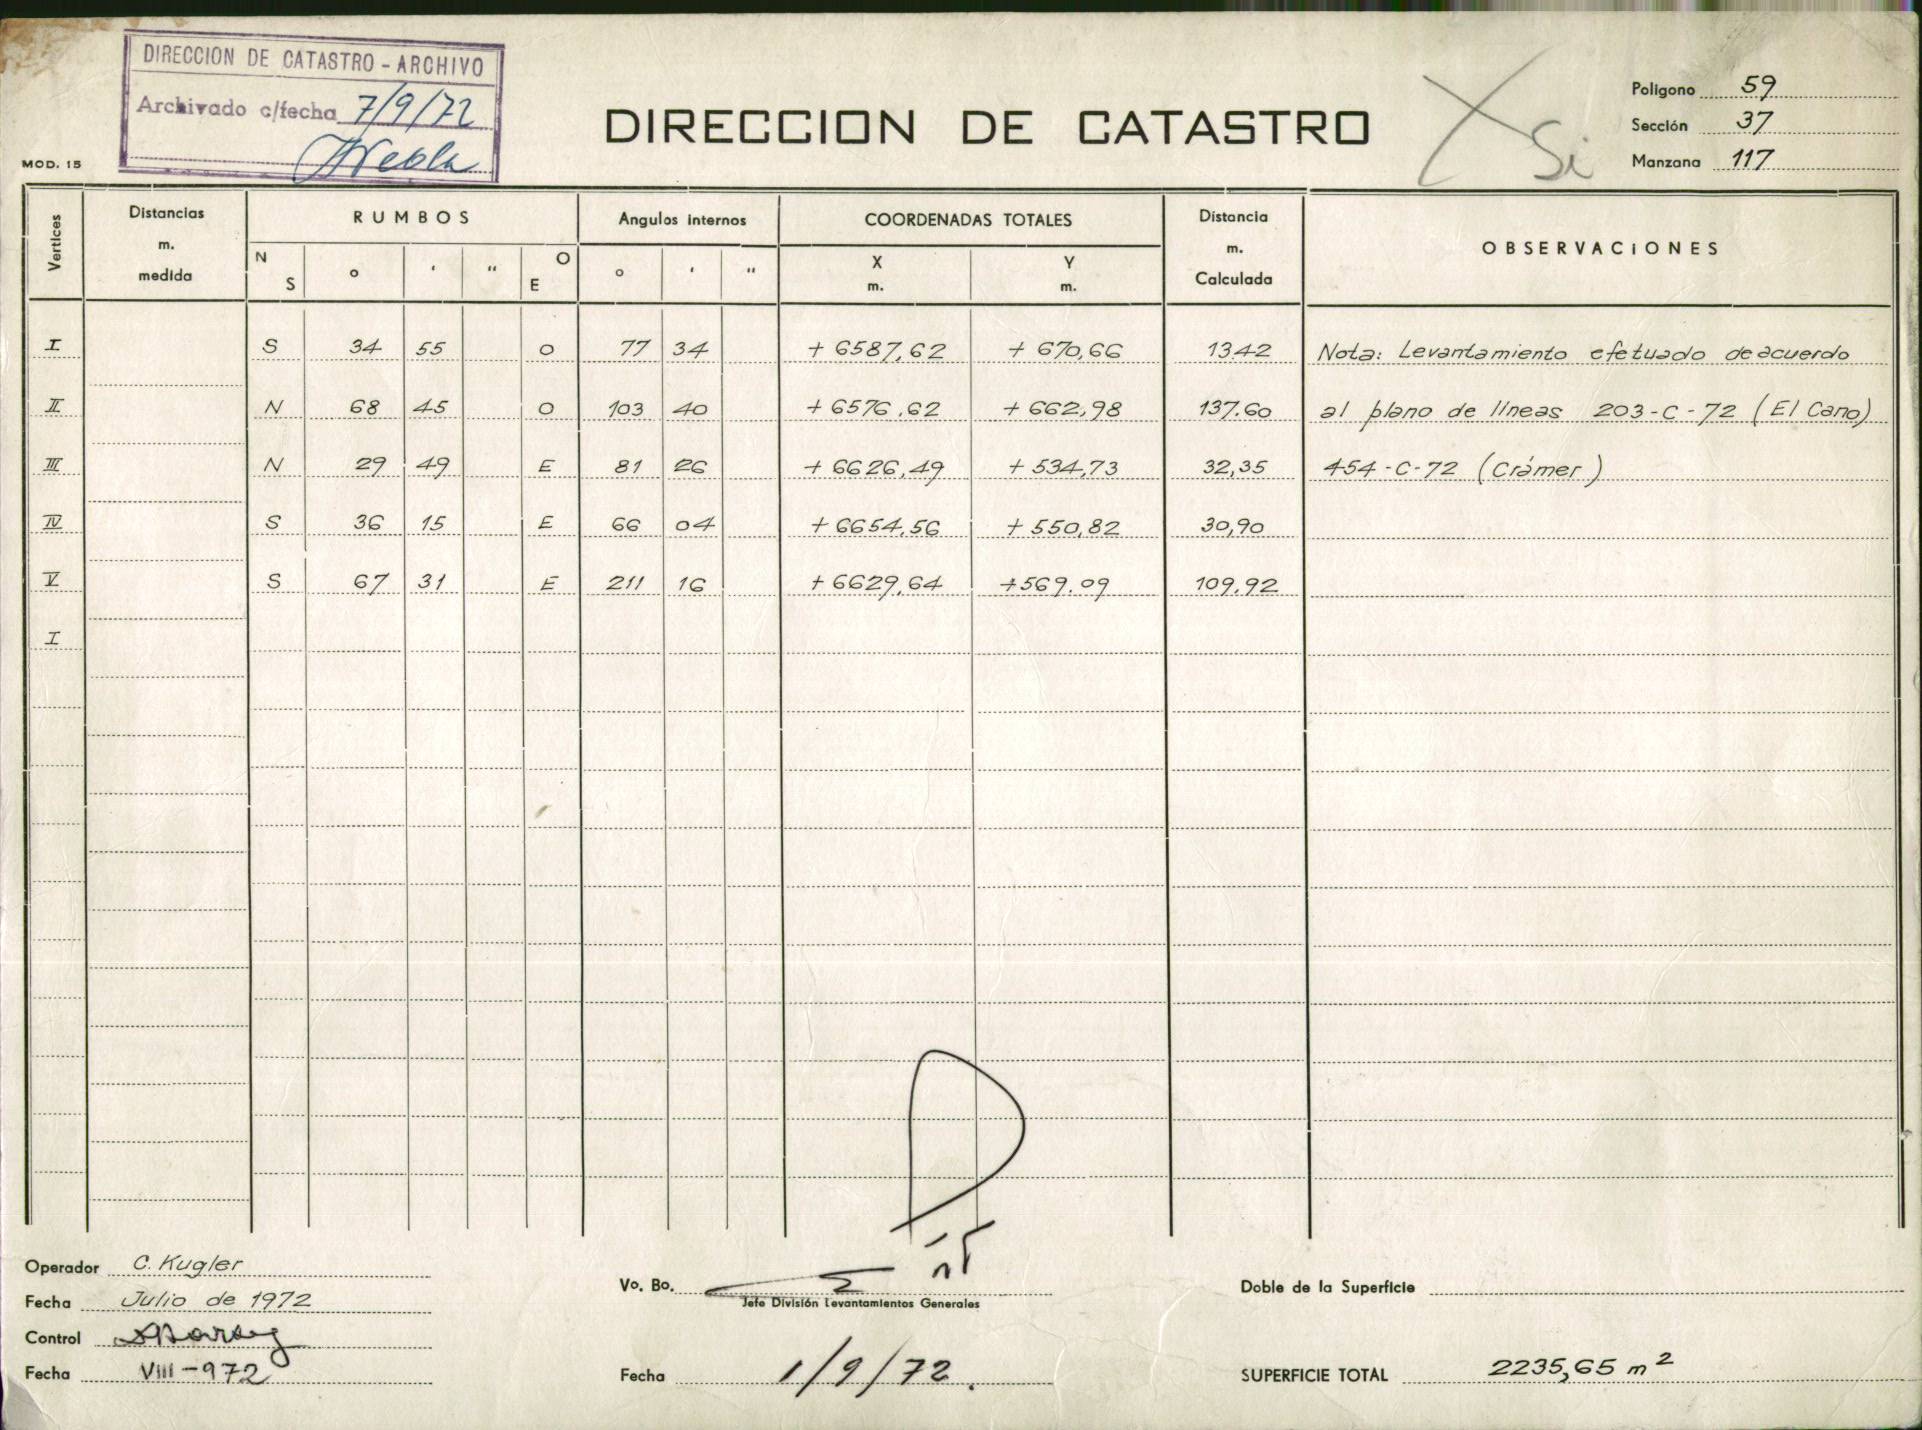 DIRECCION DE CATASTRO - ARCHIVO
Archivado c/fecha 7/9/72
MOD. 15
DIRECCION DE CATASTRO
Si
Poligono 59
Sección 37
Manzana 117
Vertices
Distancias m. medida
RUMBOS
N S o ' " O E
Angulos internos
o ' "
COORDENADAS TOTALES
X m. Y m.
Distancia m. Calculada
OBSERVACIONES
I S 34 55 O 77 34 + 6587,62 + 670,66 13.42 Nota: Levantamiento efetuado de acuerdo
II N 68 45 O 103 40 + 6576,62 + 662,98 137.60 al plano de líneas 203-C-72 (El Cano)
III N 29 49 E 81 26 + 6626,49 + 534,73 32,35 454-C-72 (Crámer)
IV S 36 15 E 66 04 + 6654,56 + 550,82 30,90
V S 67 31 E 211 16 + 6629,64 +569.09 109,92
I
Operador C. Kugler
Fecha Julio de 1972
Control
Fecha VIII-972
Vo. Bo.
Jefe División Levantamientos Generales
Fecha 1/9/72.
Doble de la Superficie
SUPERFICIE TOTAL 2235,65 m²